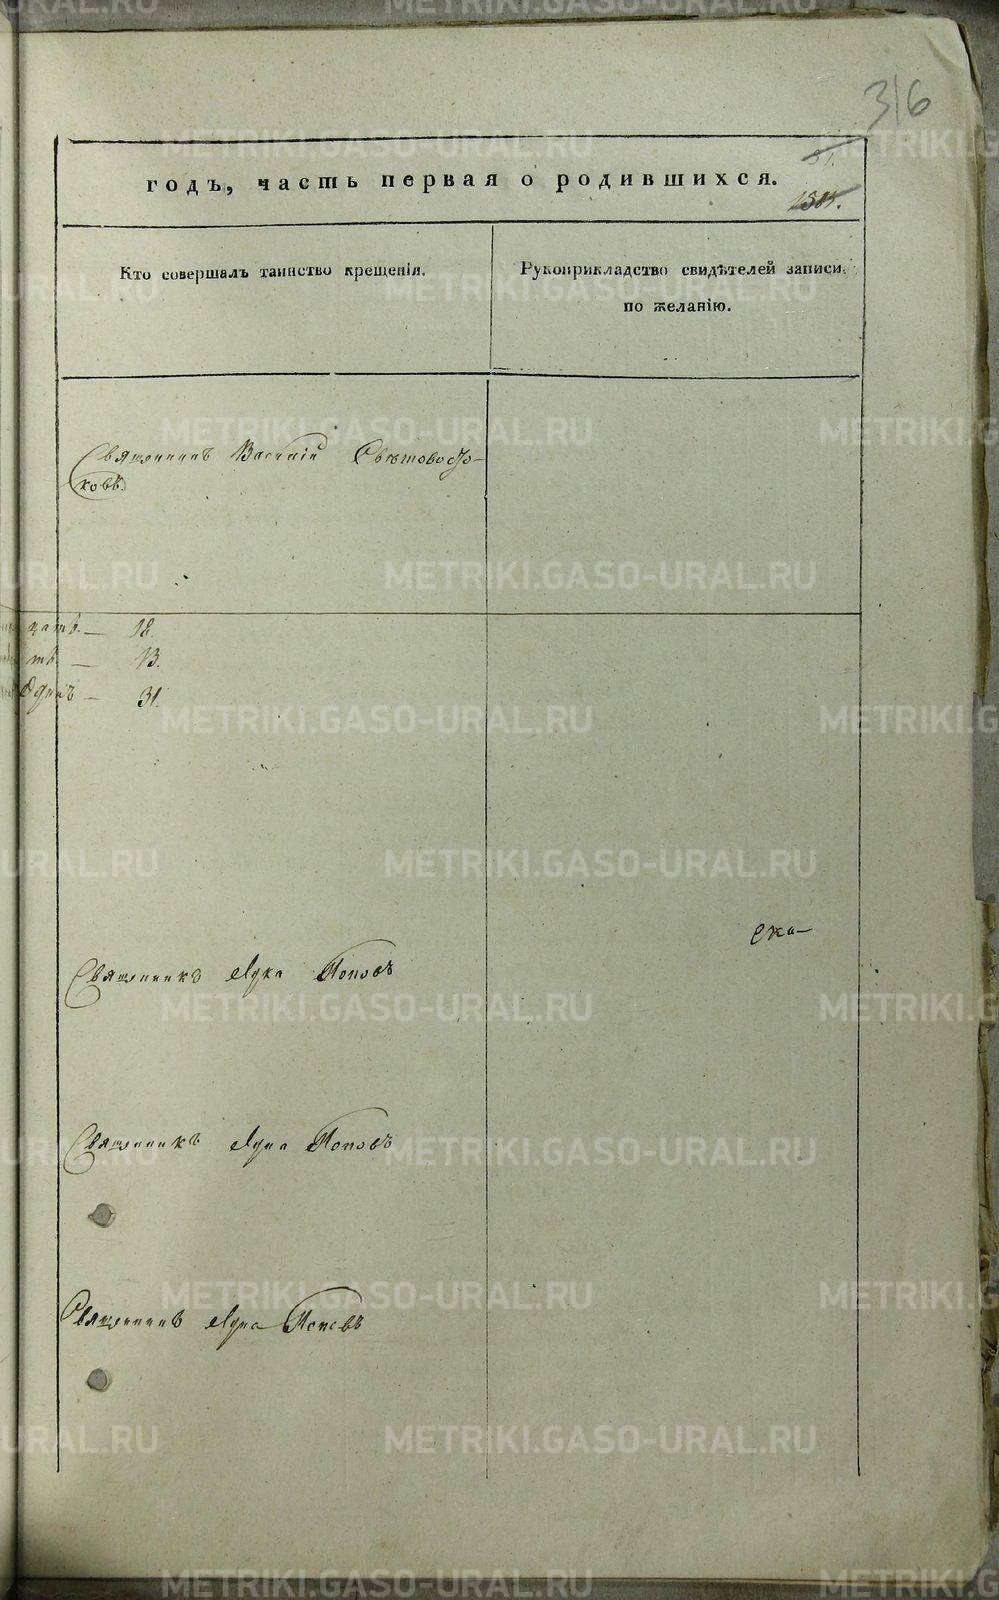 316
годъ, часть первая о родившихся.
Кто совершалъ таинство крещенія.
Рукоприкладство свидѣтелей записи
по желанію.
Священникъ Василій Свѣтовостo-
ковъ.
18.
13.
Одинъ — 31.
ека-
Священникъ Лука Поповъ
Священникъ Лука Поповъ
Священникъ Лука Поповъ
METRIKI.GASO-URAL.RU